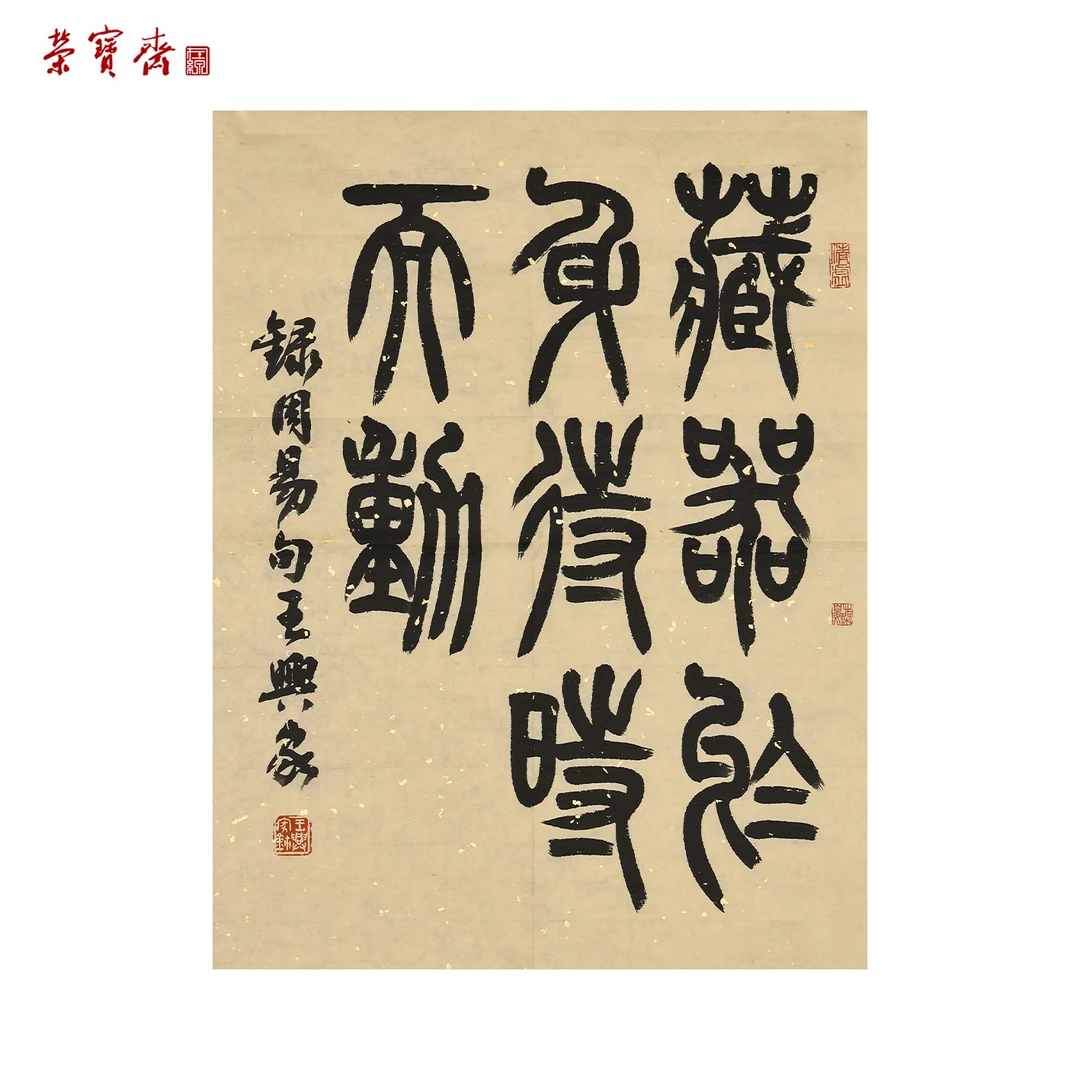 榮寶齋
藏器於
身待時
而動
録周易句王興家